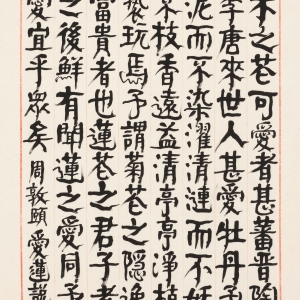 木之花可愛者甚蕃晉陶
李唐來世人甚愛牡丹予
泥而不染濯清漣而不妖
不枝香遠益清亭亭淨植
褻玩焉予謂菊花之隱逸
富貴者也蓮花之君子者
之後鮮有聞蓮之愛同予
愛宜乎眾矣 周敦頤愛蓮說